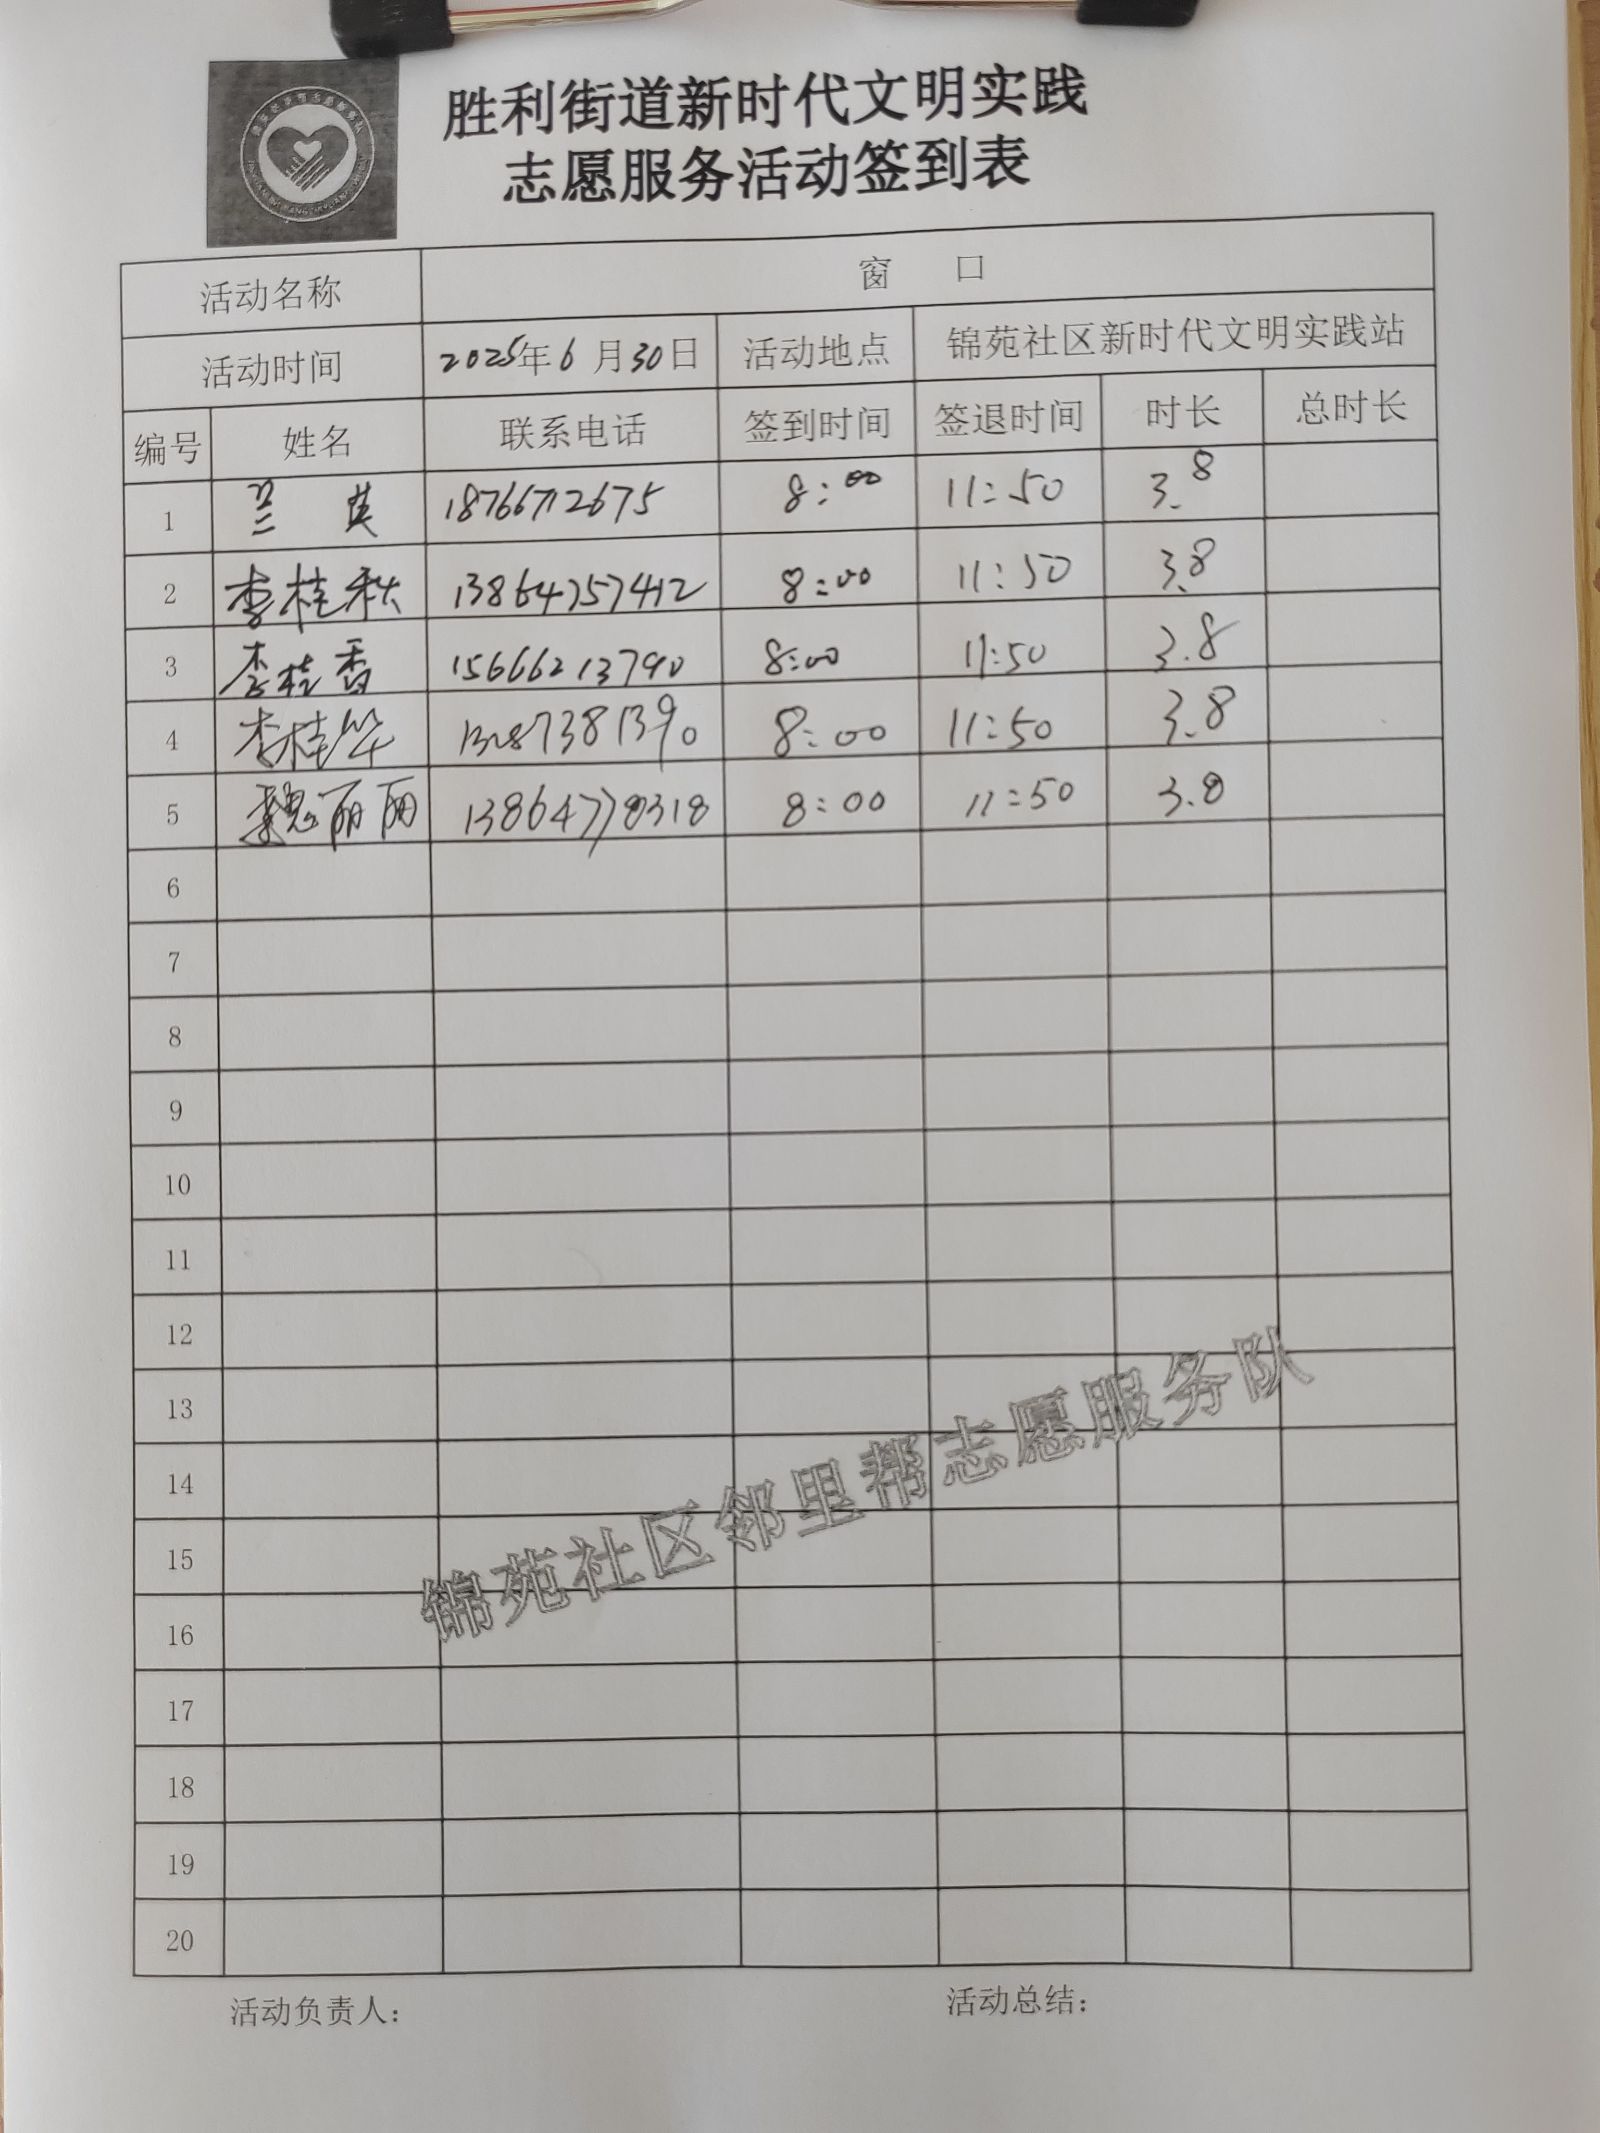 胜利街道新时代文明实践
志愿服务活动签到表
活动名称 窗 口
活动时间 2025年6月30日 活动地点 锦苑社区新时代文明实践站
编号 姓名 联系电话 签到时间 签退时间 时长 总时长
1 兰英 18766712675 8:00 11:50 3.8
2 李桂秋 13864757412 8:00 11:50 3.8
3 李桂香 15666213790 8:00 11:50 3.8
4 李桂华 8:00 11:50 3.8
5 魏丽丽 13864778318 8:00 11:50 3.8
6
7
8
9
10
11
12
13
14
15
16
17
18
19
20
锦苑社区邻里帮志愿服务队
活动负责人: 活动总结: